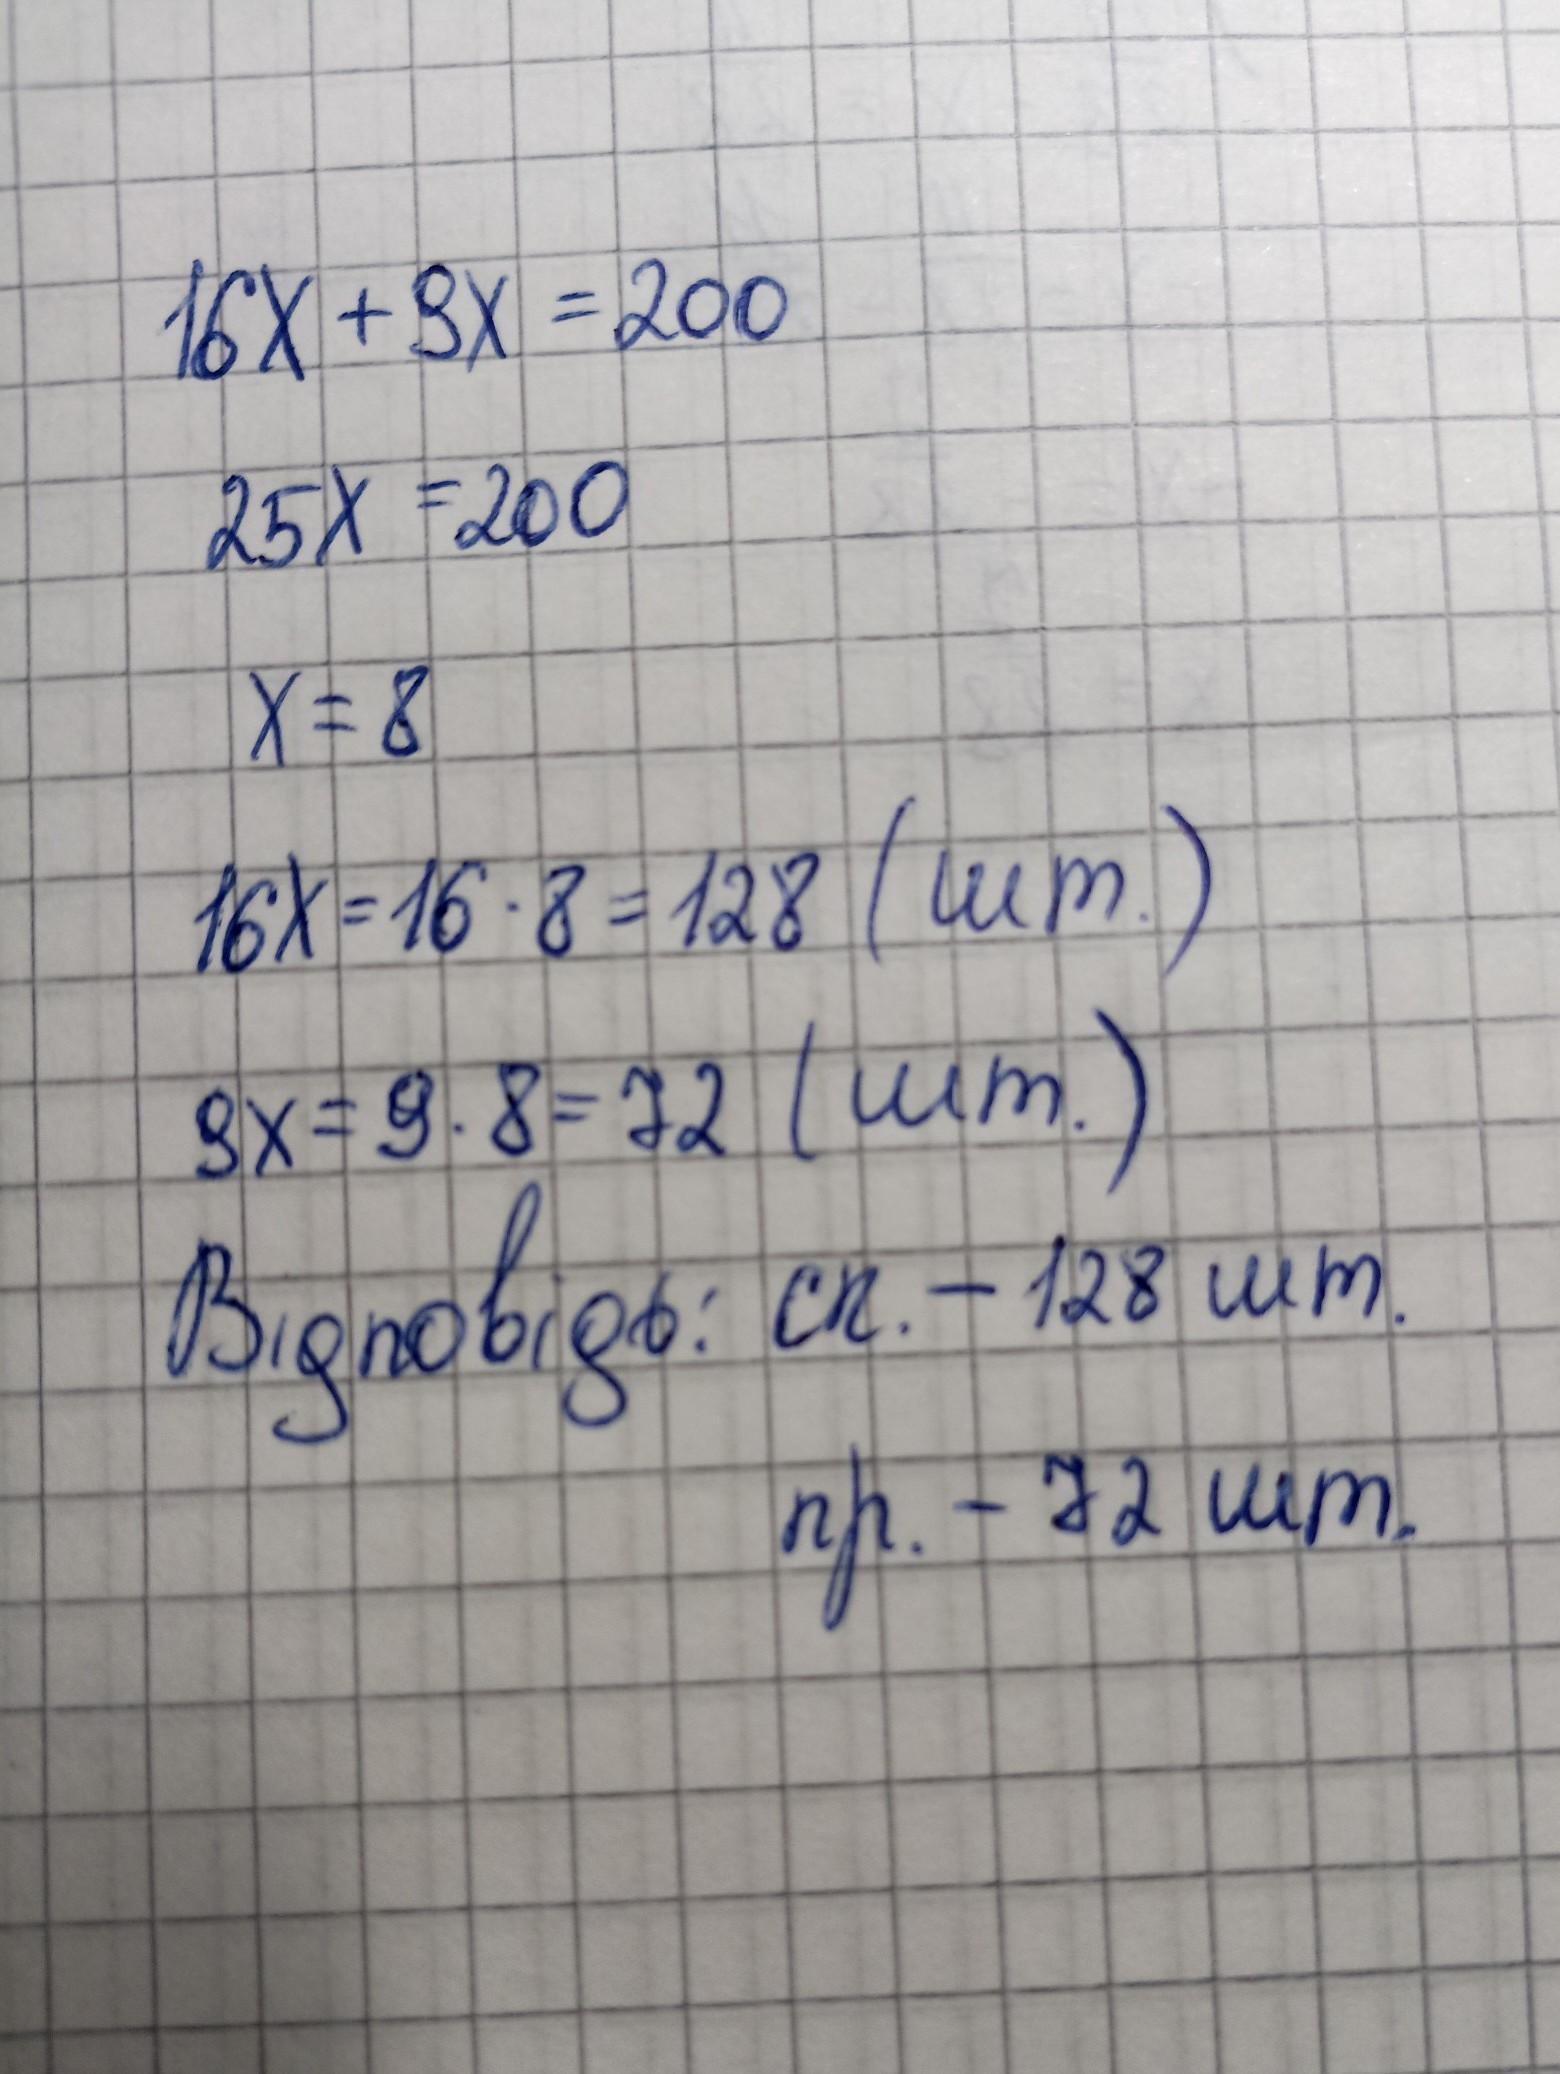 16x + 9x = 200
25x = 200
x = 8
16x = 16 · 8 = 128 (шт.)
9x = 9 · 8 = 72 (шт.)
Відповідь: ск. – 128 шт.
пр. – 72 шт.